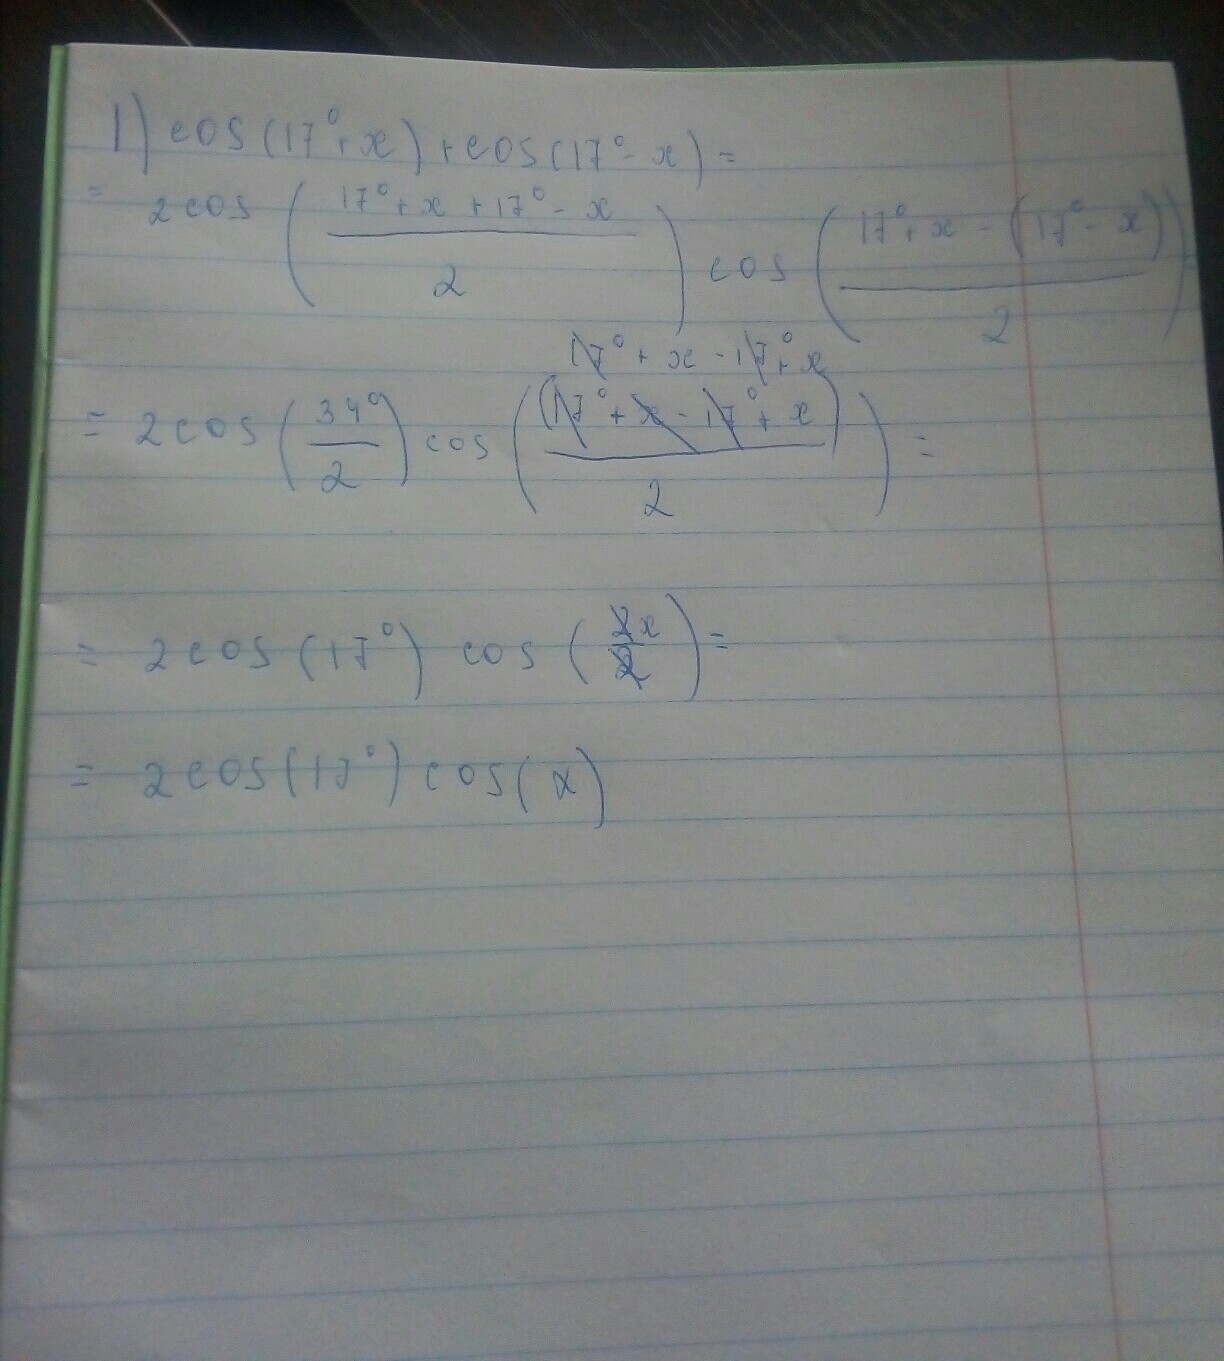 1) cos(17°+x)+cos(17°-x)=
= 2cos((17°+x+17°-x)/2) cos((17°+x-(17°-x))/2)
17°+x-17°+x
= 2cos(34°/2) cos(((17°+x-17°+x))/2) =
= 2cos(17°) cos(2x/2)=
= 2cos(17°) cos(x)